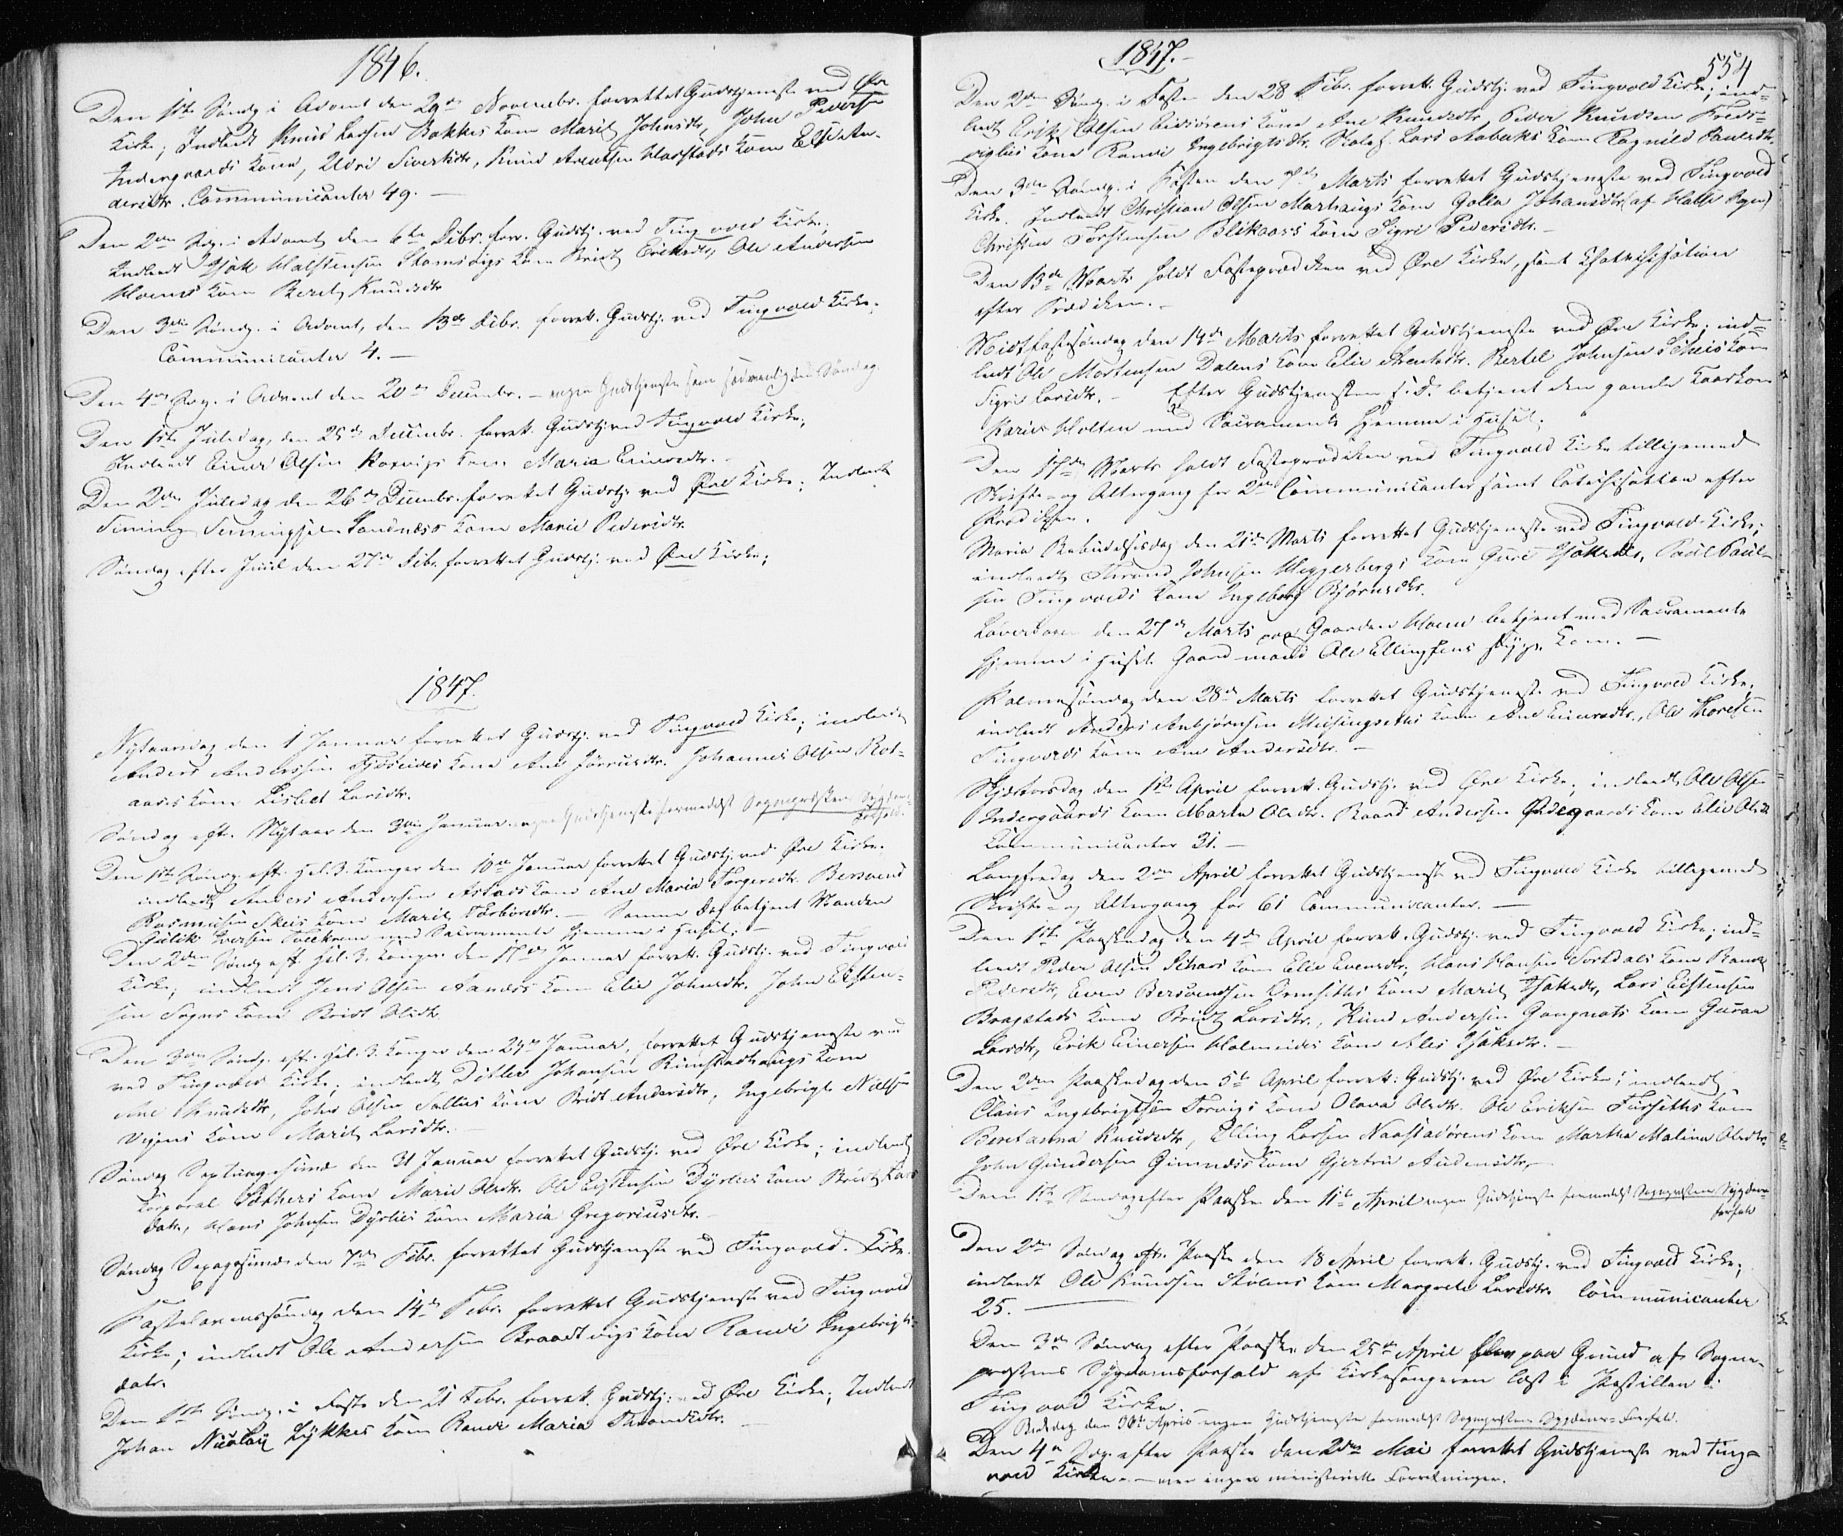 1846.
Den 1ste Søndg. i Advent den 29de Novembr. forrettet Gudstjeneste ved Øre
Kirke; Indledt Knud Larsen Bakkes Kone Marit Johnsdtr, John Peders.
Indergaards Kone, Sivertsdtr, Knud Arentsen Harstads Kone
dersdtr. Communicanter 49. —
Den 2den Søg. i Advent den 6te Debr. forr. Gudstj. ved Tingvold Kirke;
Indledt Isak Halstensen Stamsvigs Kone Bridt Eriksdtr, Ole Andersen
Hoems Kone Berit Knudsdtr
Den 3die Søndg. i Advent, den 13de Debr. forrett. Gudstj. ved Tingvold Kirke;
Communicanter 4. —
Den 4de Søg. i Advent den 20de Decembr. — ingen Gudstjeneste som sædvanlig den Søndag.
Den 1ste Juledag, den 25de Decembr. forrett. Gudstj. ved Tingvold Kirke,
Indledt Einer Olsen Koxvigs Kone Maria Einersdtr.
Den 2den Juledag den 26de Decembr. forrettet Gudstj. ved Øre Kirke; Indledt
Sandnæss Kone Marie Pedersdtr.
Søndag efter Juul den 27de Debr. forrettet Gudstj. ved Øre Kirke;
1847.
Nytaarsdag den 1 Januar forrettet Gudstj. ved Tingvold Kirke; indledt
Anders Andersen Kone Ane Johannes Olsen Rot-
aases Kone Lisbet Larsdtr.
Søndag eft. Nytaar den 3die Januar ingen Gudstjeneste formedelst Sognepræsten Sygdoms-
forfald.
Den 1ste Søndg. eft. Hel. 3 Konger den 10de Januar forrettet Gudstj. ved Øre Kirke.
indledt Anders Andersen Kone Ane Maria Torgersdtr. Bersvend
Rasmusen Skeis Kone Marit — Samme Dag betjent Manden
Gulik Iversen med Sacramente hjemme i Huset; —
Den 2den Søndg. eft. Hel. 3 Konger. den 17de Januar forrett. Gudstj. ved Tingvold
Kirke; indledt Jens Olsen Aanæs Kone Elie Johnsdtr. John Esten-
sen Kone Bridt Olsdtr.
Den 3die Søndg. eft. Hel. 3 Konger den 24de Januar, forrettet Gudstjeneste ved
ved Tingvolds Kirke; indledt Ditlev Johansen Rimstadhaugs Kone
Ane Knudsdtr, John Olsen Kone Bridt Andersdtr, Ingebrigt Niels.
Vejens Kone Marit Larsdtr. —
Søndag Septuagesimæ den 31 Januar forrettet Gudstj. ved Øre Kirke; indledt
Korporal Kone Marie Olsdtr. Ole Estensen Dyrlies Kone Bridt Lars
datr, Hans Johnsen Dyrlies Kone Maria Gregoriusdtr. —
Søndag Sexagesimæ den 7de Febr. forrettet Gudstjeneste ved Tingvold. Kirke.
Fastelavenssøndag den 14de Febr. forrettet Gudstjeneste ved Tingvold
Kirke; indledt Ole Andersen Kone Randi Ingebrigts-
datr.
Den 1ste Søndg. i Faste den 21 Febr. forrett. Gudstj. ved Øre Kirke; Indledt
Johan Nicolai Lykkes Kone Rande Maria Throndsdtr. —
1847. —
554
Den 2den Søndg. i Faste den 28 Febr. forrett. Gudstj. ved Tingvold Kirke; ind-
ledt Erik Olsen Kone Ane Knudsdtr, Peder Knudsen
Kone Randi Ingebrigtsdtr. Lars Aabaks Kone Ragnild Paulsdtr.
Den 3die Søndg. i Fasten den 7de Marts forrettet Gudstjeneste ved Tingvold
Kirke. Indledt Christian Olsen Marhaugs Kone Golla Johansdtr. (af Halle Sogn)
Christen Torstensen Kone Sigri Pedersdtr. —
Den 13de Marts holdt Fasteprædiken ved Øre Kirke, samt Chatechisation
efter Prædiken. —
Midfastesøndag den 14de Marts forrettet Gudstjeneste ved Øre Kirke; ind-
ledt Ole Mortensen Dalens Kone Elie Arentsdtr. Bertel Johnsen Skeis Kone
Sigri Larsdtr. — Efter Gudstjenesten s. D. betjent den gamle Kaarkone
Karen Holten med Sacramente hjemme i Huset;
Den 17de Marts holdt Fasteprædiken ved Tingvold Kirke tilligemed
Skrifte- og Altergang for 2de Communicanter samt Catechisation efter
Prædiken.
Maria Bebudelsesdag den 21de Marts forrettet Gudstjeneste ved Tingvold Kirke;
indledt Thrond Johnsen Meggerbergs Kone Guri Isaksdtr, Paul Paul-
sen Tingvolds Kone Ingeborg Bjørnsdtr.
Løverdagen den 27de Marts paa Gaarden Hoem betjent med Sacramente
hjemme i Huset Gaardmand Ole Ellingsens syge Kone. —
Palmesøndag den 28de Marts forrettet Gudstjeneste ved Tingvold Kirke;
indledt Anders Anbjørnsen Meisingsets Kone Ane Einersdtr, Ole Thoresen
Tingvolds Kone Ane Andersdtr. —
Skjærtorsdag den 1ste April forrett. Gudstj. ved Øre Kirke, indledt Ole Olsen
Indergaards Kone Marta Olsdtr. Baard Andersen Ødegaards Kone Elie Olsdtr
Communicanter 31. —
Langfredag den 2den April forrettet Gudstjeneste ved Tingvold Kirke tilligemed
Skrifte- og Altergang for 61 Communicanter. —
Den 1ste Paaskedag den 4de April forrett. Gudstj. ved Tingvold Kirke; ind-
ledt Peder Olsen Kone Elie Evensdtr, Hans Hansen Kone Randi
Pedersdtr, Even Bersvendsen Ormsettes Kone Marit Isaksdtr, Lars Estensen
Bragstads Kone Bridt Larsdtr., Knud Andersen Gangnats Kone Guran
Larsdtr, Erik Einersen Holmeides Kone Ales Isaksdtr. —
Den 2den Paaskedag den 5te April forrett: Gudstj. ved Øre Kirke; indledt
Claus Ingebrigtsen Torvigs Kone Olava Olsdtr. Ole Eriksen Furseths Kone
Beretanna Knudsdtr, Elling Larsen Naastadørens Kone Martha Malina Olsdtr.
John Gundersen Gimnæs Kone Gjertru Audensdtr. —
Den 1ste Søndag efter Paaske den 11te April ingen Gudstjeneste formedelst Sognepræsten Sygdoms-
forfald
Den 2den Søndag eft. Paaske den 18 April forrett. Gudstj. ved Tingvold Kirke;
indledt Ole Knudsen Stølens Kone Margrete Larsdtr. Communicanter
25. —
Den 3de Søndag efter Paaske den 25de April blev paa Grund af Sogne-
præstens Sygdomsforfald af Kirkesangeren læst i Postillen i
Tingvold Kirke.
Bededag den 30te April ingen Gudstjeneste formedelst Sognepræsten Sygdoms-Forfald.
Den 4de Søg. efter Paaske den 2den Mai forrettet Gudstjeneste ved Ting-
vold Kirke. — men ingen ministerielle Forretninger.